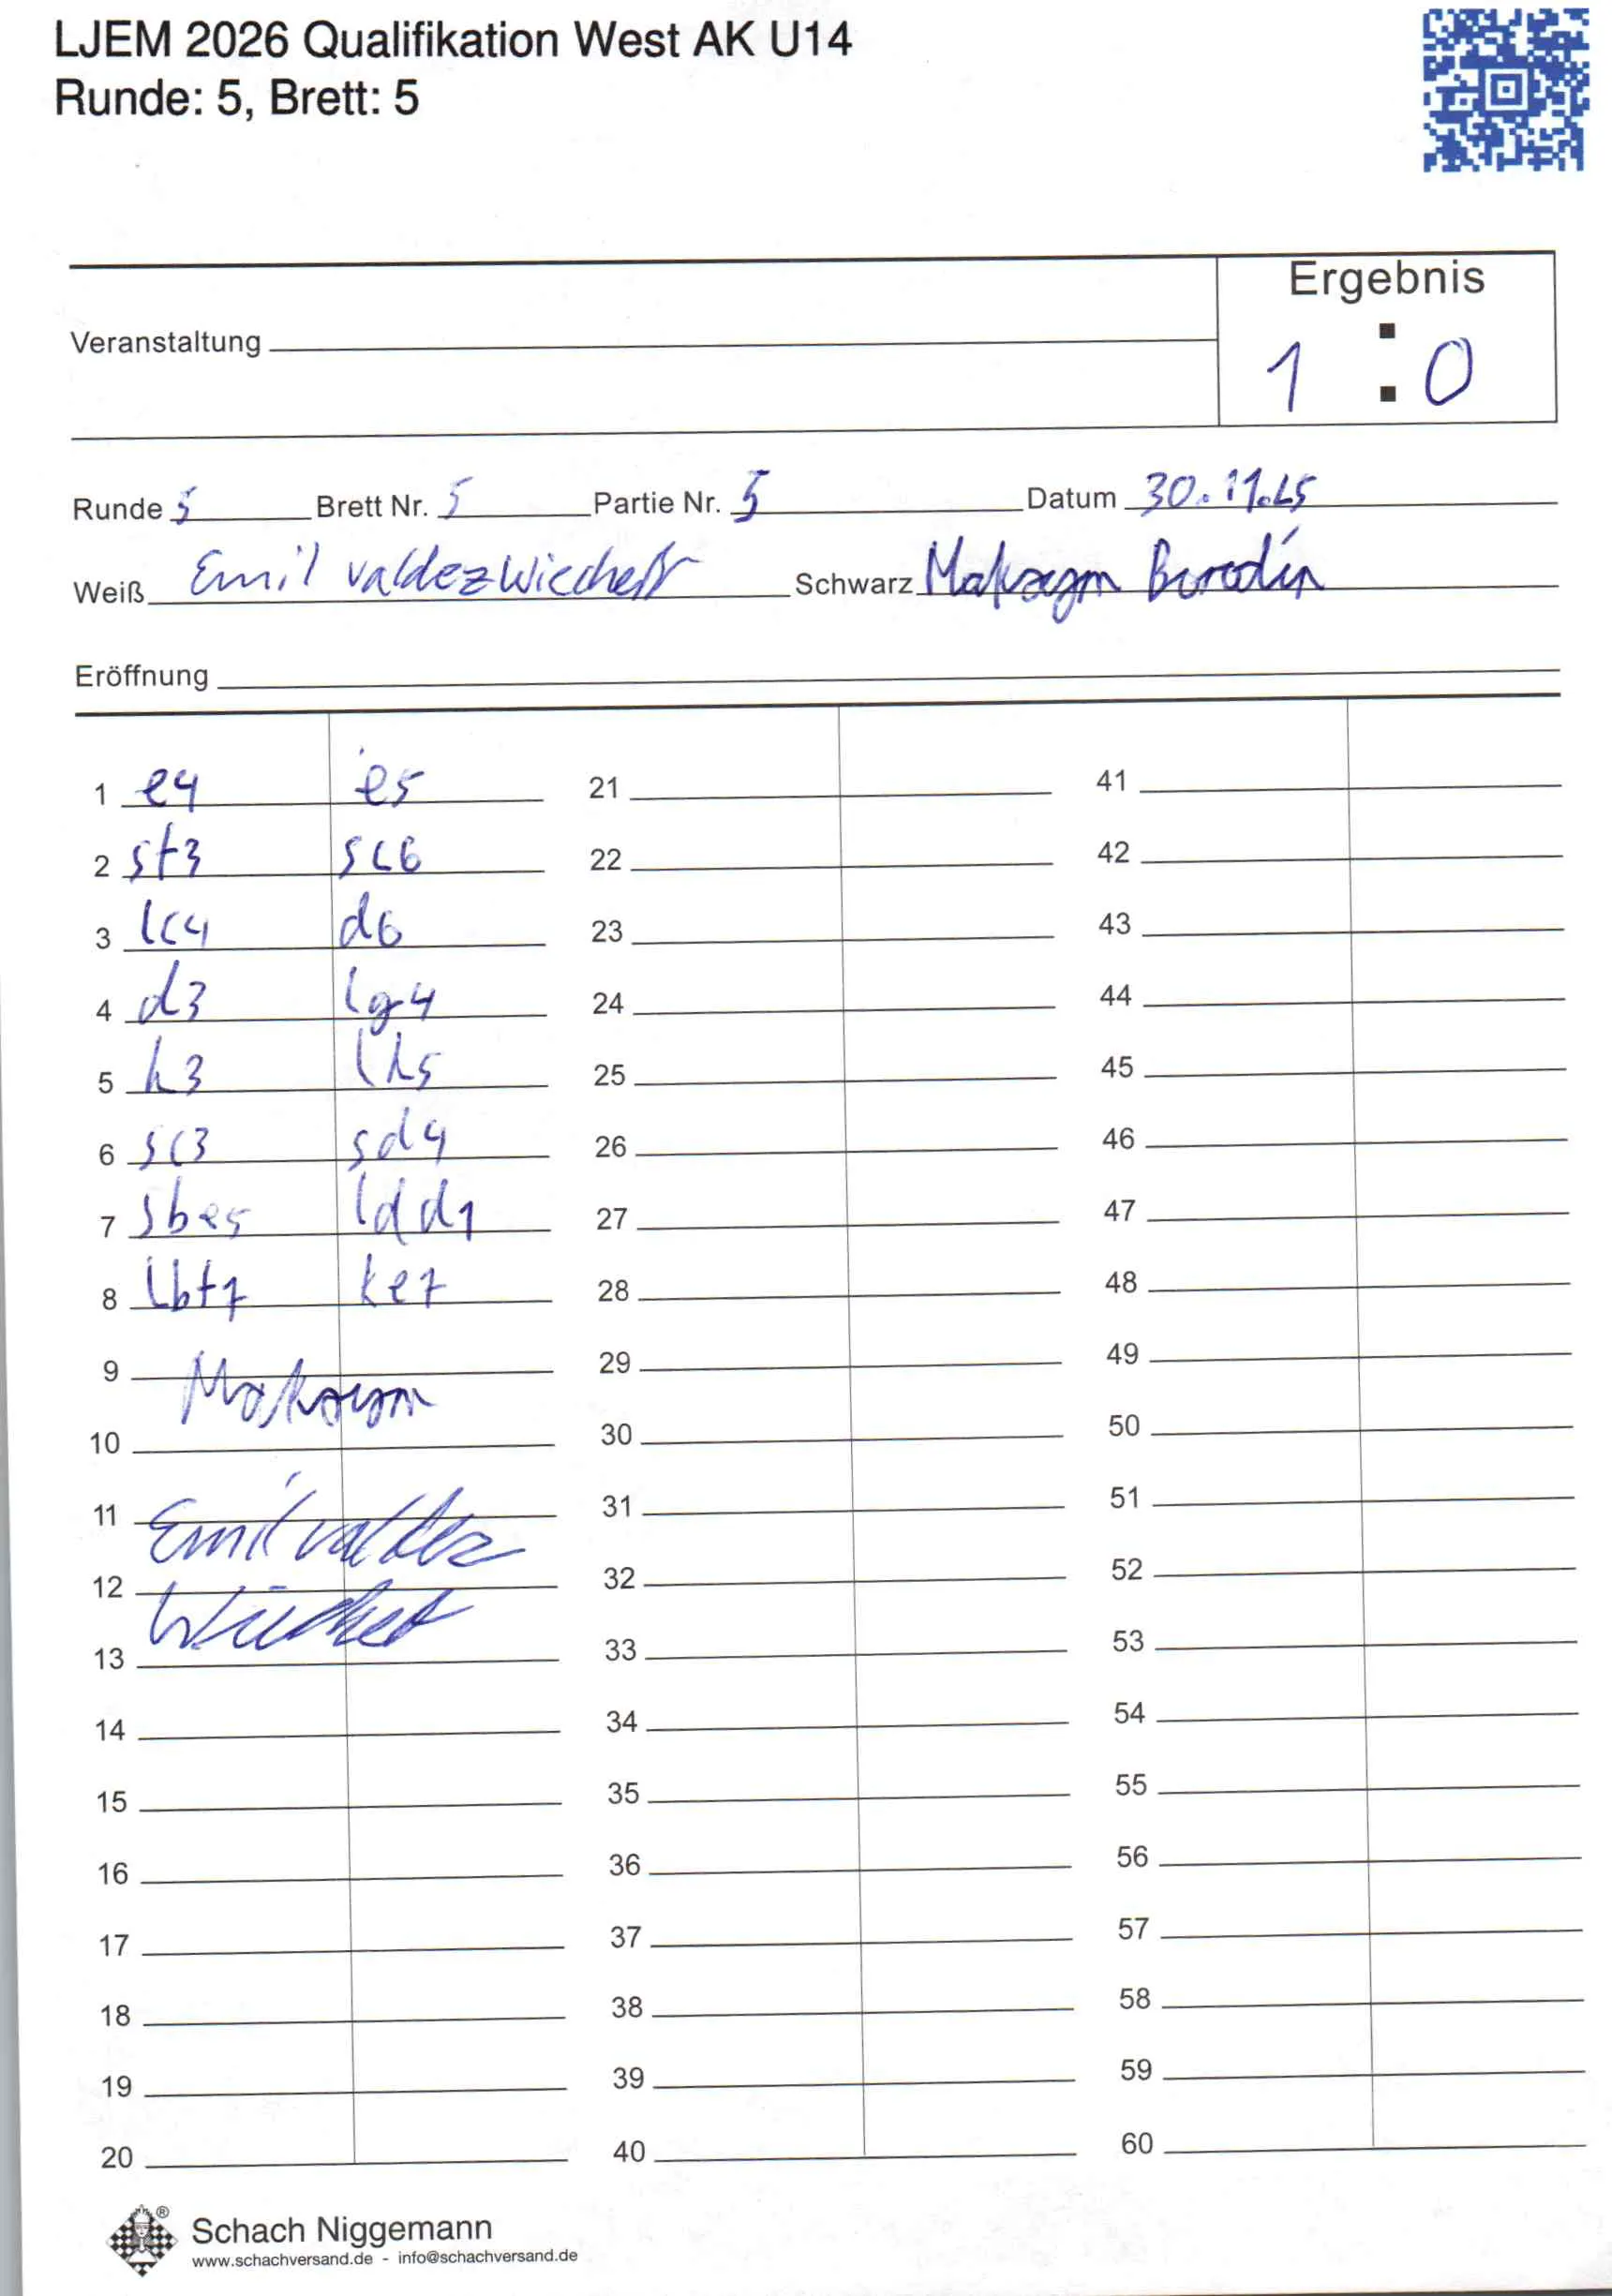 LJEM 2026 Qualifikation West AK U14
Runde: 5, Brett: 5
Ergebnis
Veranstaltung
1 : 0
Runde 5 Brett Nr. 5 Partie Nr. 5 Datum 30.11.25
Weiß Emil valdez Wiechert Schwarz Maksym Borodin
Eröffnung
1 e4 e5 21 41
2 sf3 sc6 22 42
3 lc4 d6 23 43
4 d3 lg4 24 44
5 h3 lh5 25 45
6 sc3 sd4 26 46
7 sbe5 ldd1 27 47
8 lbf7 ke7 28 48
9 29 49
Maksym
10 30 50
11 31 51
Emil valdez
12 32 52
Wiechert
13 33 53
14 34 54
15 35 55
16 36 56
17 37 57
18 38 58
19 39 59
20 40 60
Schach Niggemann
www.schachversand.de - info@schachversand.de